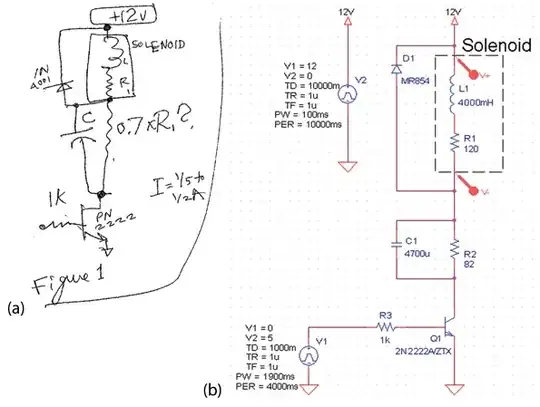 +12V
SOLENOID
L
R1
1N
4001
C
0.7xR1?
I=1/5 to
1/2A
1K
PN
2222
Figure 1
(a)
12V
12V
Solenoid
V1 = 12
V2 = 0
TD = 10000m
TR = 1u
TF = 1u
PW = 100ms
PER = 10000ms
V2
D1
MR854
V+
L1
4000mH
R1
120
V-
C1
4700u
R2
82
V1 = 0
V2 = 5
TD = 1000m
TR = 1u
TF = 1u
PW = 1900ms
PER = 4000ms
V1
R3
1k
Q1
2N2222A/ZTX
(b)